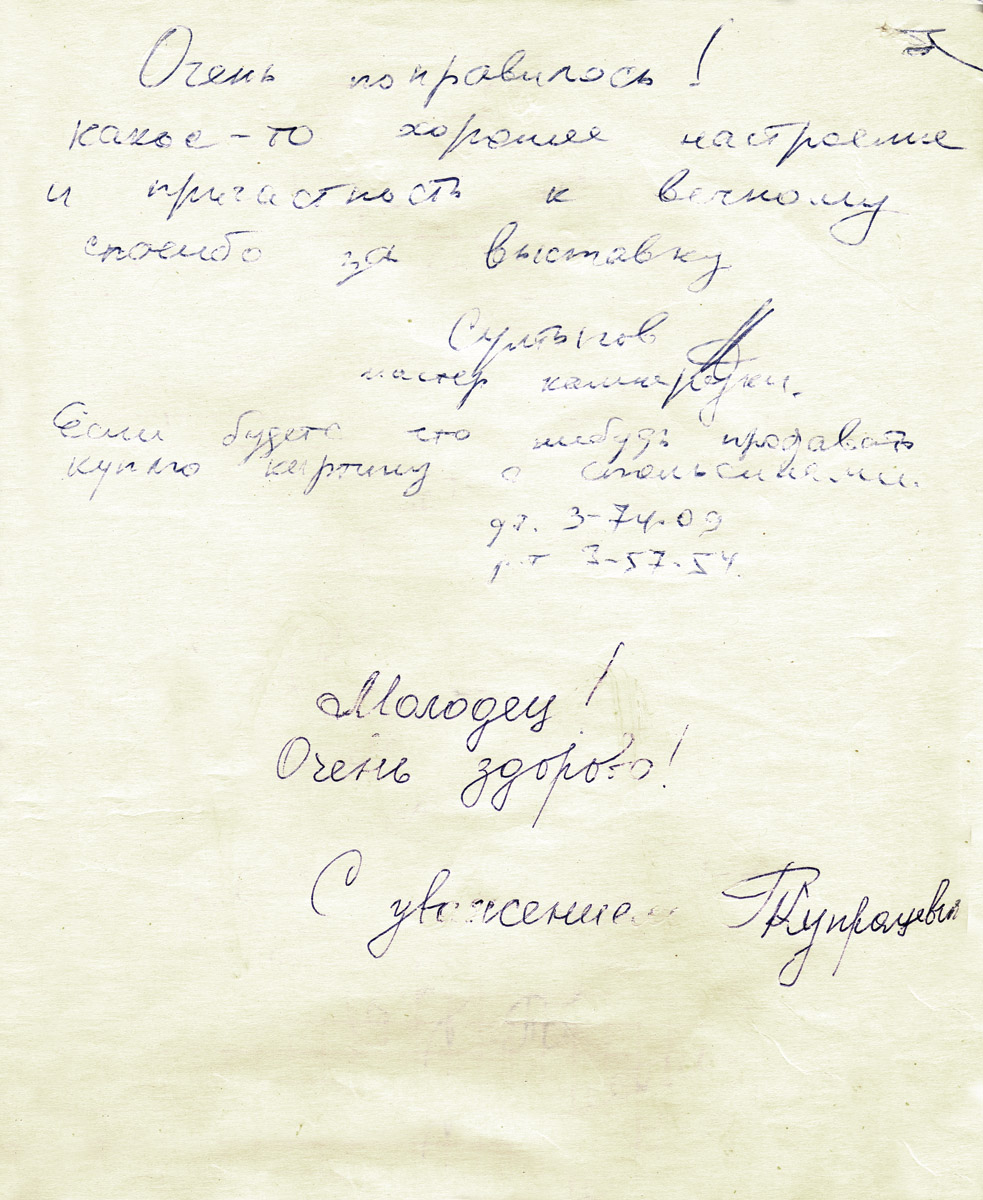 Очень понравилось!
какое-то хорошее настроение
и причастность к вечному
спасибо за выставку
Султыгов
мастер камнерезки.
Если будете что нибудь продавать
куплю картину с апельсинами.
д.т. 3-74-09
р.т 3-57-54.
Молодец!
Очень здорово!
С уважением